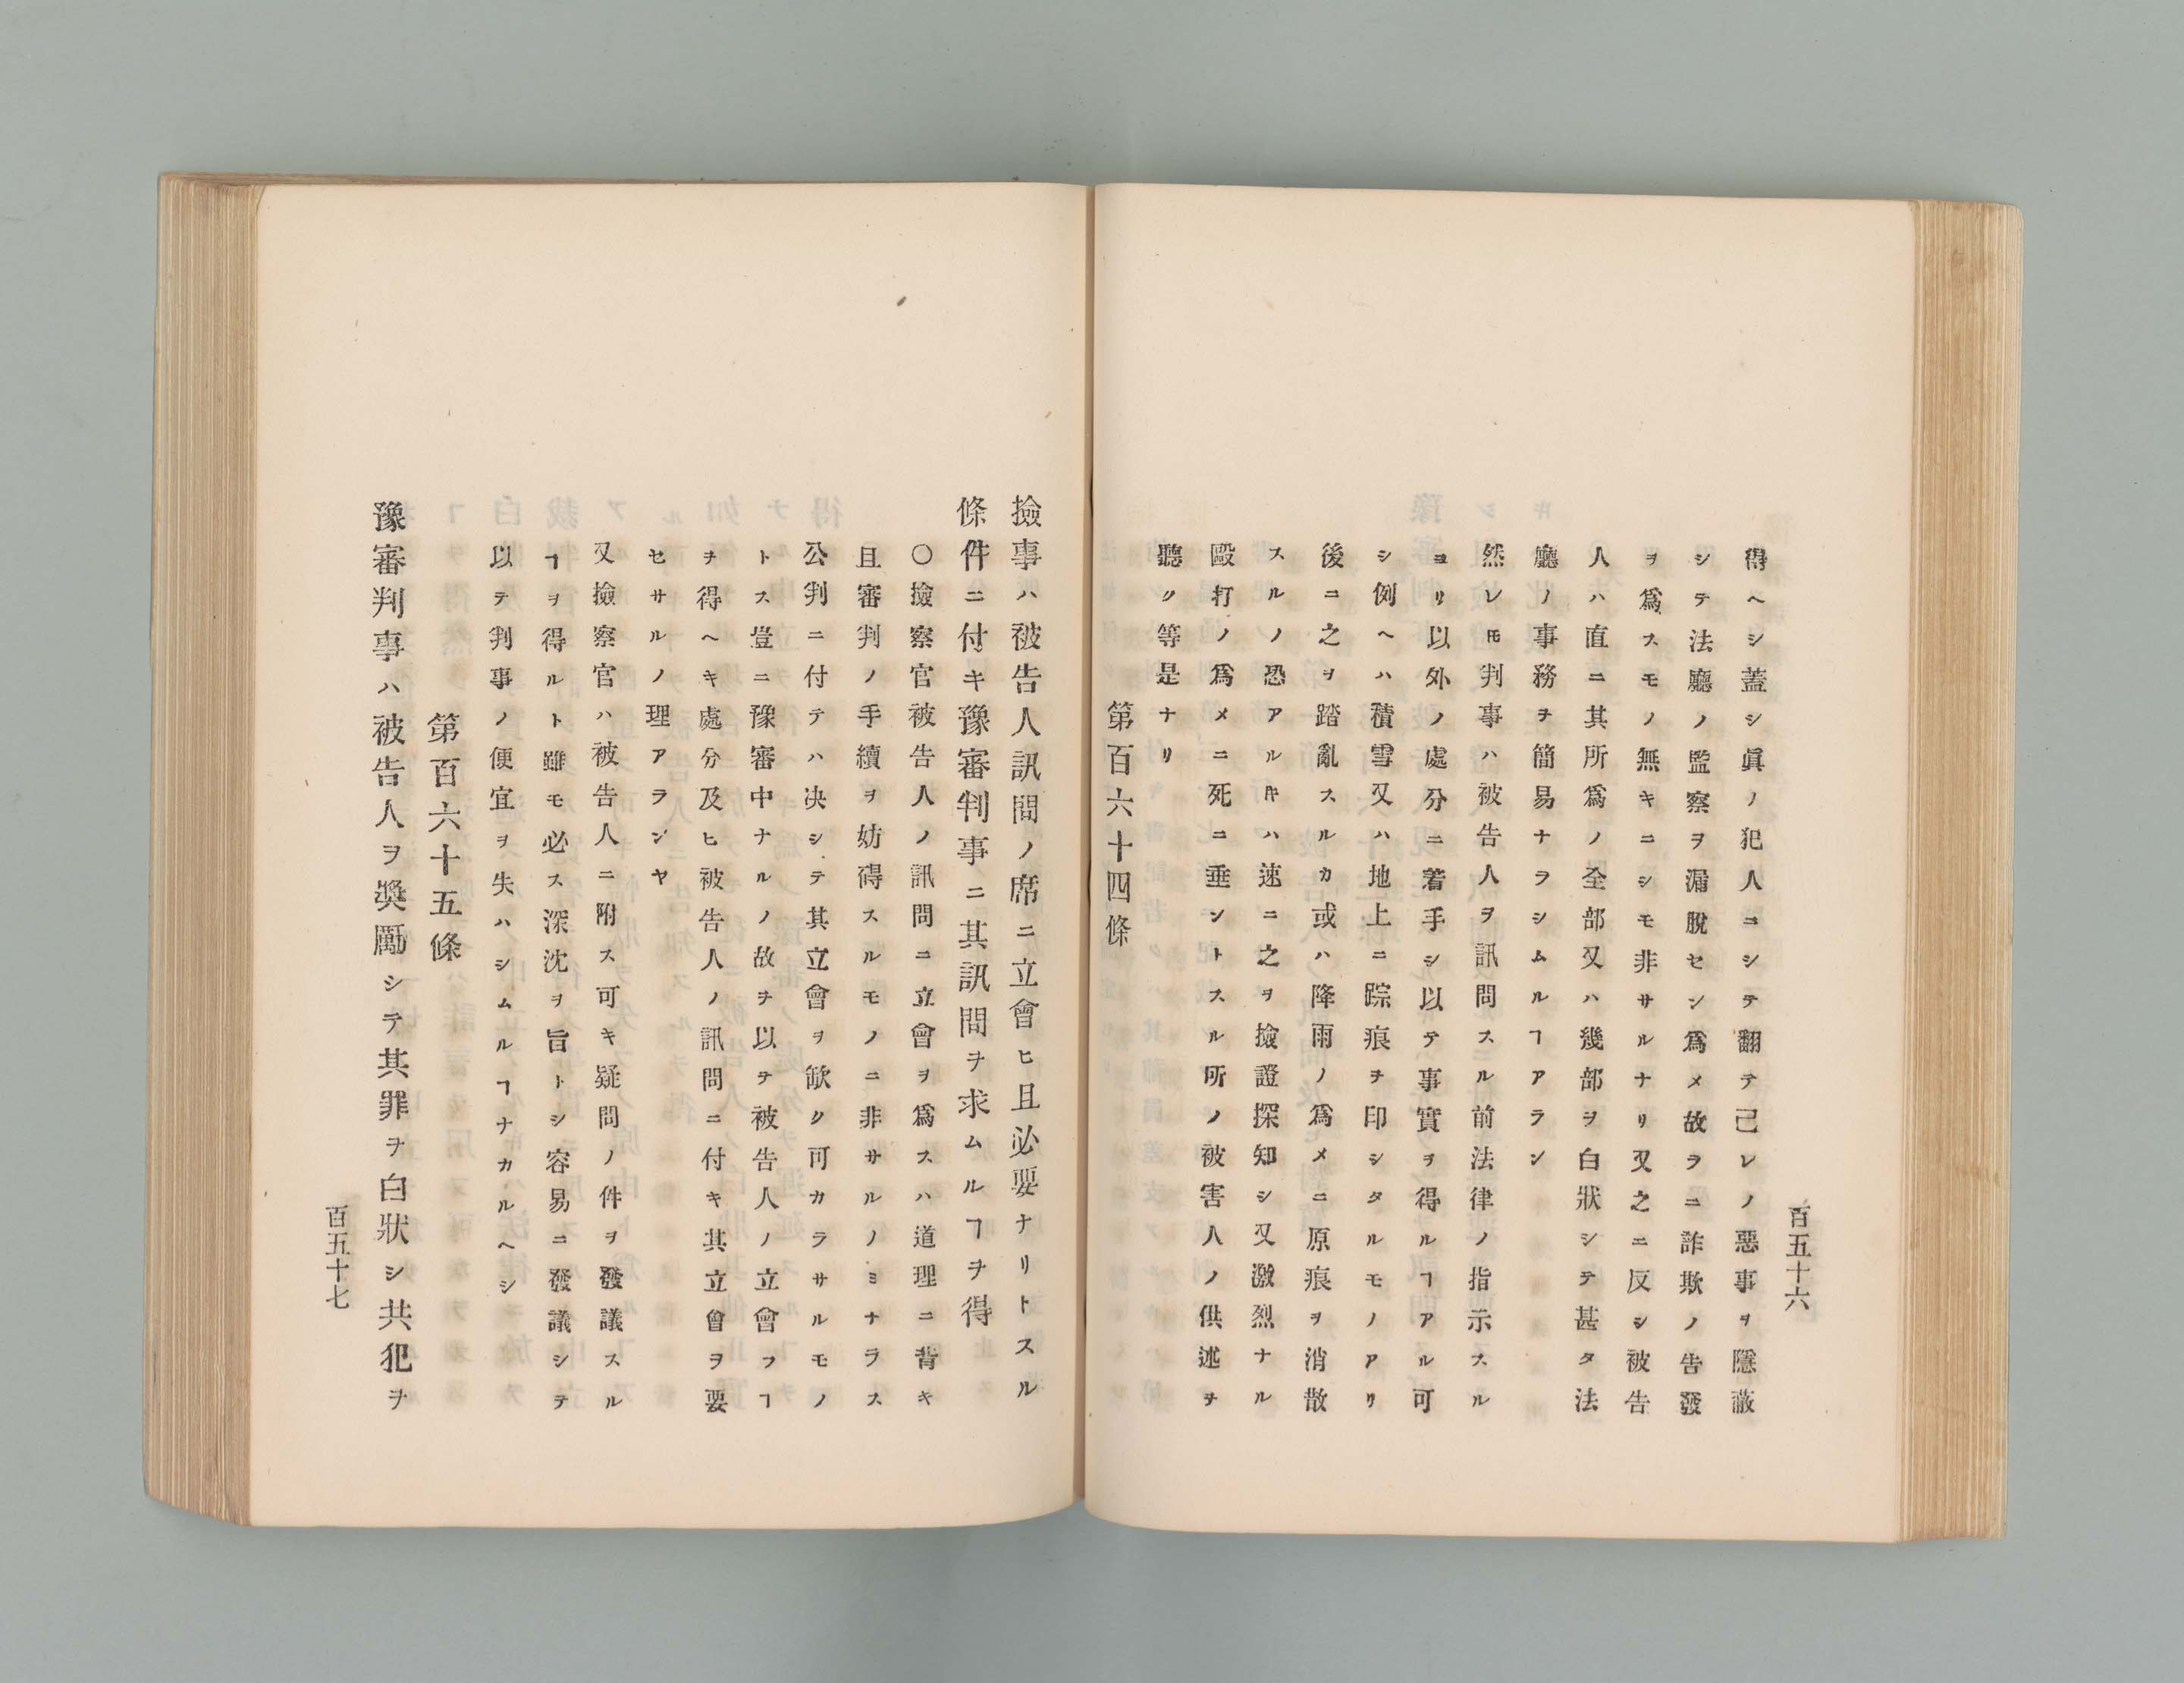 百五十六
得ヘシ蓋シ眞ノ犯人ニシテ翻テ己レノ惡事ヲ隱蔽
シテ法廳ノ監察ヲ漏脫セン爲メ故ラニ詐欺ノ告發
ヲ爲スモノ無キニシモ非サルナリ又之ニ反シ被告
人ハ直ニ其所爲ノ全部又ハ幾部ヲ白狀シテ甚タ法
廳ノ事務ヲ簡易ナラシムルヿアラン
然レ𪜈判事ハ被告人ヲ訊問スル前法律ノ指示スル
ヨリ以外ノ處分ニ着手シ以テ事實ヲ得ルヿアル可
シ例ヘハ積雪又ハ地上ニ踪痕ヲ印シタルモノアリ
後ニ之ヲ踏亂スルカ或ハ降雨ノ爲メニ原痕ヲ消散
スルノ恐アルキハ速ニ之ヲ撿證探知シ又激烈ナル
毆打ノ爲メニ死ニ垂ントスル所ノ被害人ノ供述ヲ
聽ク等是ナリ
第百六十四條
撿事ハ被告人訊問ノ席ニ立會ヒ且必要ナリトスル
條件ニ付キ豫審判事ニ其訊問ヲ求ムルヿヲ得
〇撿察官被告人ノ訊問ニ立會ヲ爲スハ道理ニ背キ
且審判ノ手續ヲ妨碍スルモノニ非サルノミナラス
公判ニ付テハ决シテ其立會ヲ歓ク可カラサルモノ
トス豈ニ豫審中ナルノ故ヲ以テ被告人ノ立會フヿ
ヲ得ヘキ處分及ヒ被告人ノ訊問ニ付キ其立會ヲ要
セサルノ理アランヤ
又撿察官ハ被告人ニ附ス可キ疑問ノ件ヲ發議スル
ヿヲ得ルト雖モ必ス深沈ヲ旨トシ容易ニ發議シテ
以テ判事ノ便宜ヲ失ハシムルヿナカルヘシ
第百六十五條
豫審判事ハ被告人ヲ奬勵シテ其罪ヲ白狀シ共犯ヲ
百五十七